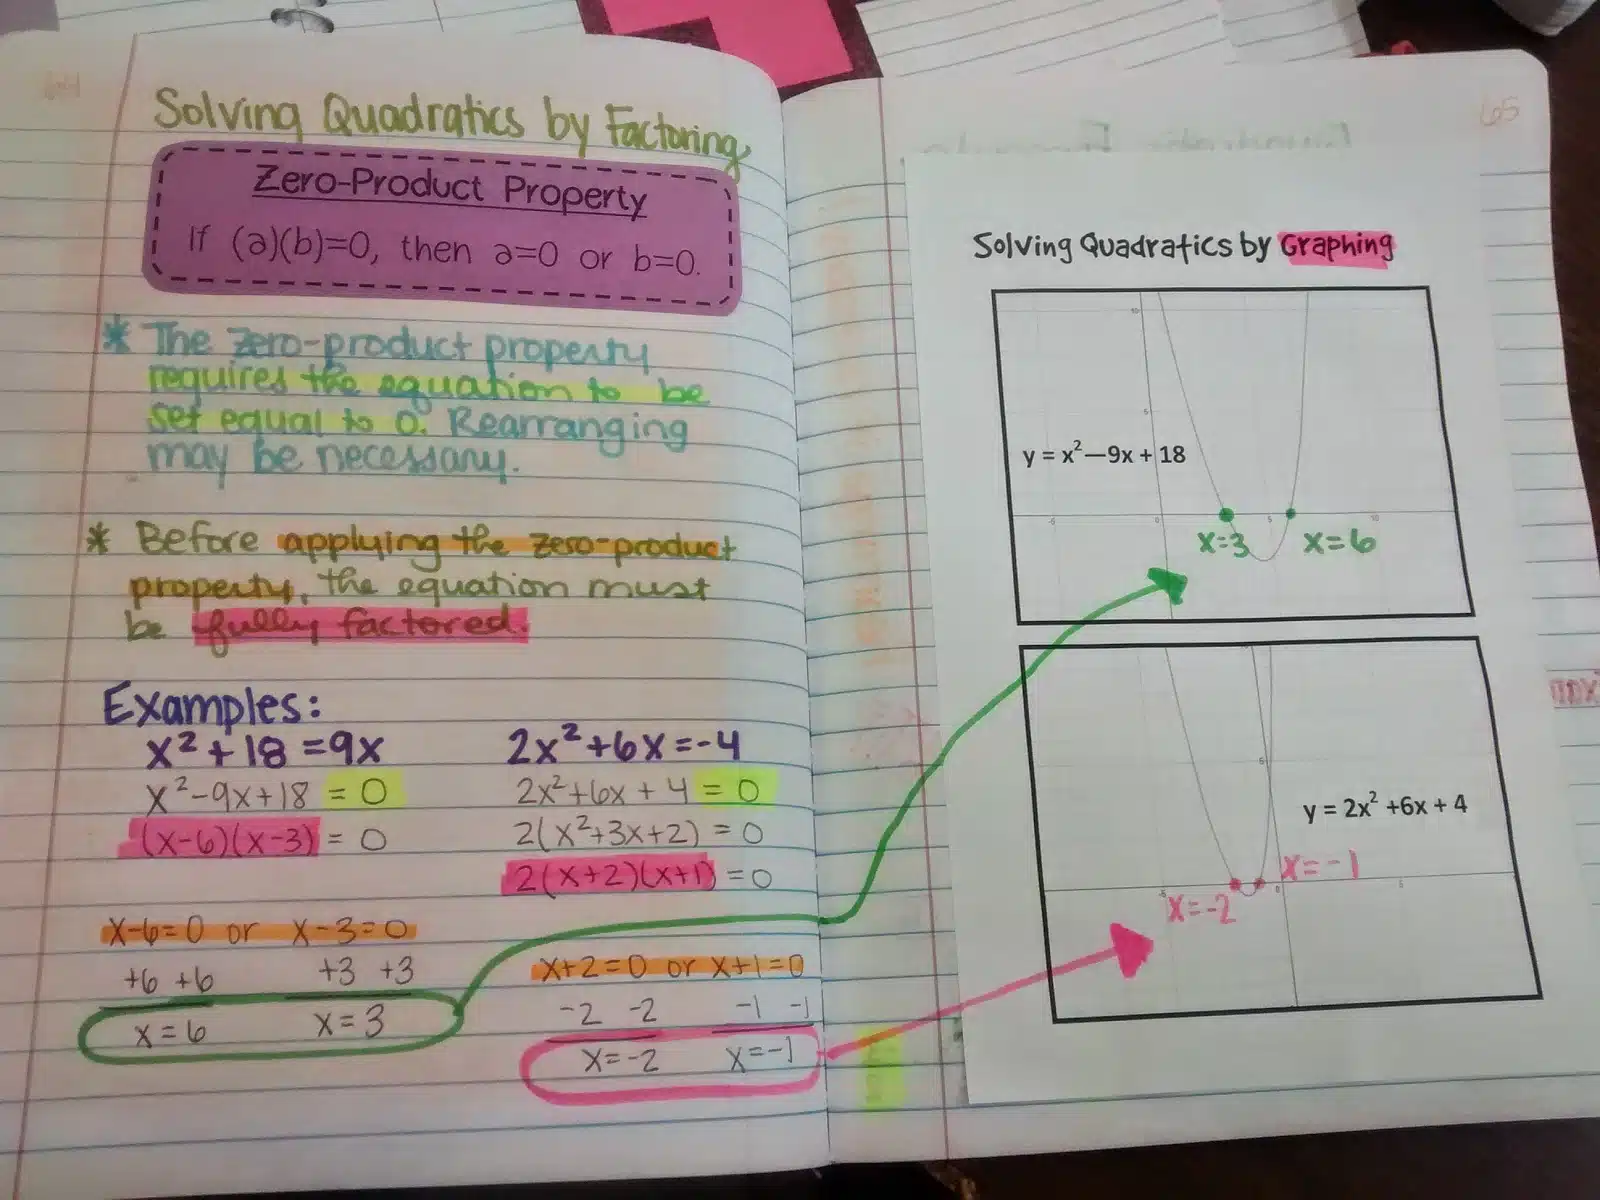 64
Solving Quadratics by Factoring
Zero-Product Property
If (a)(b)=0, then a=0 or b=0.
* The zero-product property
requires the equation to be
set equal to 0. Rearranging
may be necessary.
* Before applying the zero-product
property, the equation must
be fully factored.
Examples:
x²+18=9x
x²-9x+18 = 0
(x-6)(x-3) = 0
x-6=0 or x-3=0
+6 +6 +3 +3
x=6 x=3
2x²+6x=-4
2x²+6x+4 = 0
2(x²+3x+2) = 0
2(x+2)(x+1) = 0
x+2=0 or x+1=0
-2 -2 -1 -1
x=-2 x=-1
65
Solving Quadratics by Graphing
10
5
y = x²—9x + 18
-5 0 5 10
x=3 x=6
5
y = 2x² +6x + 4
x=-1
-5 0 5
x=-2